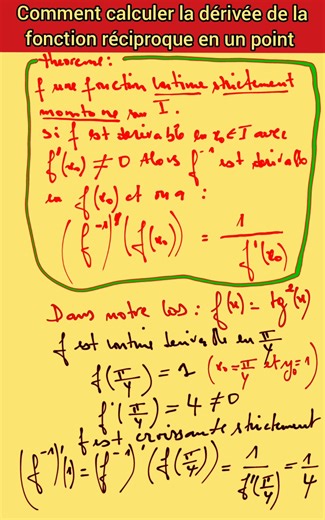 Comment calculer la dérivée de la
fonction réciproque en un point
theoreme:
f une fonction continue strictement
monotone sur I.
si f est derivable en x₀ ∈ I avec
f'(x₀) ≠ 0 Alors f⁻¹ est derivable
en f(x₀) et on a :
(f⁻¹)'(f(x₀)) = 1 / f'(x₀)
Dans notre cas : f(x) = tg²(x)
f est continue derivable en π/4
f(π/4) = 1 (x₀ = π/4 et y₀ = 1)
f'(π/4) = 4 ≠ 0
f est croissante strictement
(f⁻¹)'(1) = (f⁻¹)'(f(π/4)) = 1 / f'(π/4) = 1/4